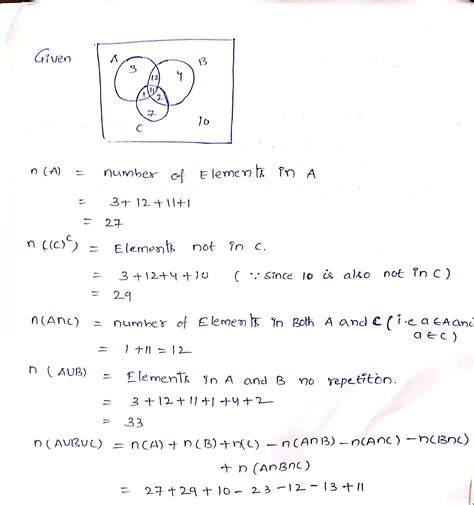 Given
A
B
3
12
4
11
1
2
7
C
10
n(A) = number of Elements in A
= 3+12+11+1
= 27
n((C)ᶜ) = Elements not in C.
= 3+12+4+10 (∵ since 10 is also not in C)
= 29
n(A∩C) = number of Elements in Both A and C (i.e a∈A and
a∈C)
= 1+11 = 12
n (A∪B) = Elements in A and B no repetition.
= 3+12+11+1+4+2
= 33
n(A∪B∪C) = n(A)+n(B)+n(C)-n(A∩B)-n(A∩C)-n(B∩C)
+n(A∩B∩C)
= 27+29+10-23-12-13+11